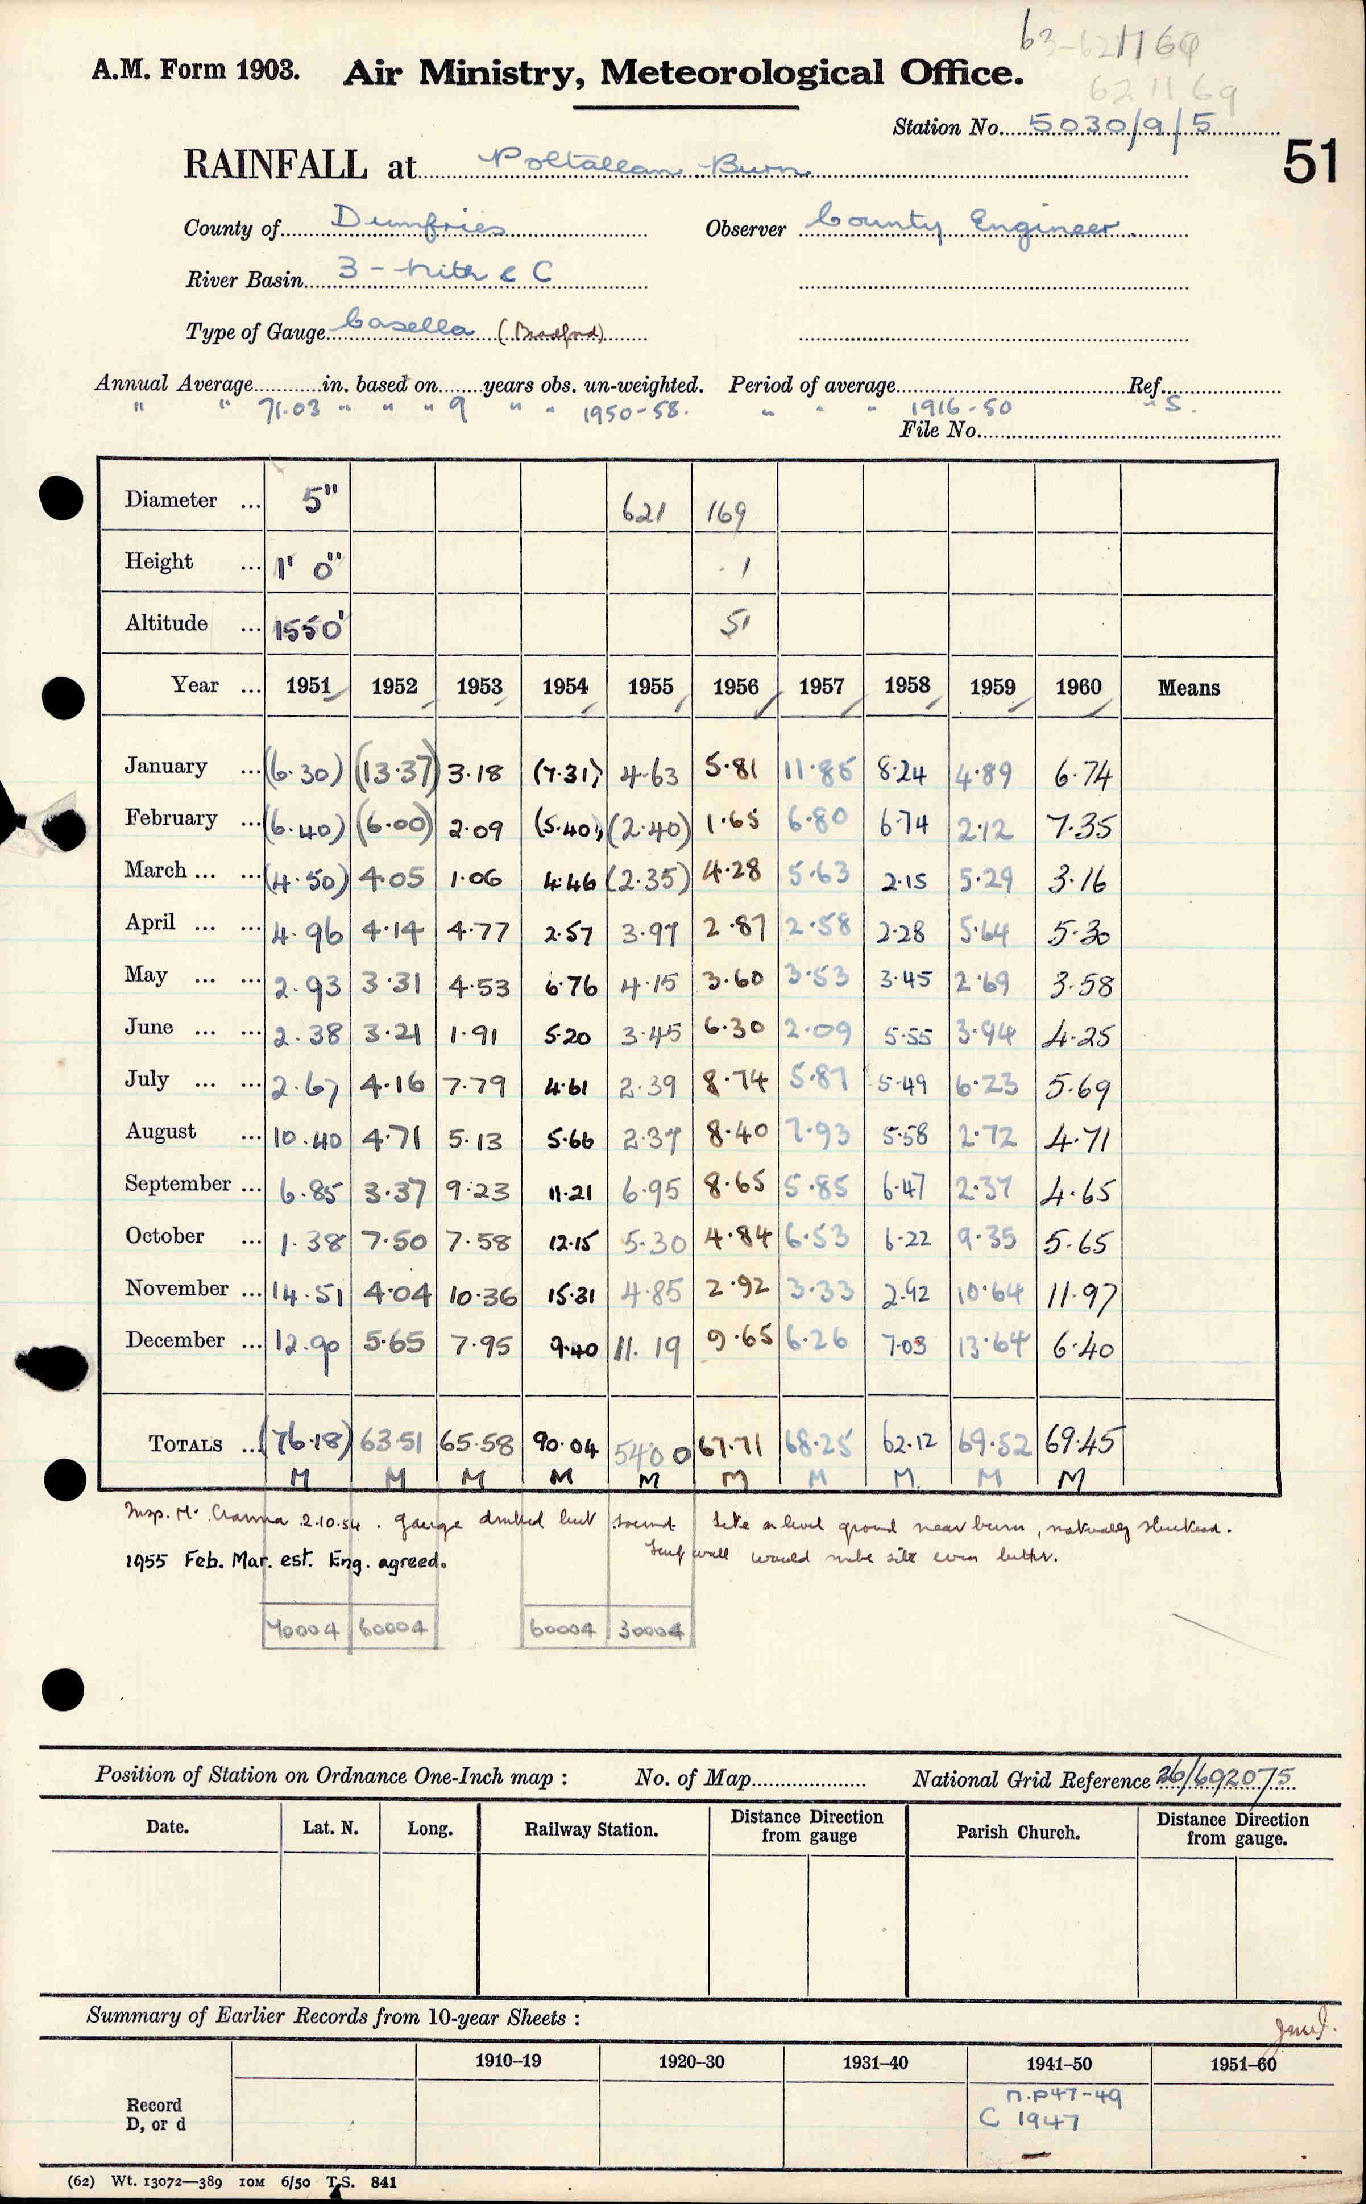 63-621169
621169
A.M. Form 1903. Air Ministry, Meteorological Office.
Station No. 5030/9/5
51
RAINFALL at Poltallan Burn
County of Dumfries Observer County Engineer.
River Basin 3 - Nith & C
Type of Gauge Casella (Bradford)
Annual Average in. based on years obs. un-weighted. Period of average Ref.
" " 71.03 " " " 9 " " 1950-58. " " " 1916-50 " S.
File No.
Diameter ... 5" 621 169
Height ... 1' 0" 1
Altitude ... 1550' 51
Year ... 1951 1952 1953 1954 1955 1956 1957 1958 1959 1960 Means
January ... (6.30) (13.37) 3.18 (7.31) 4.63 5.81 11.85 8.24 4.89 6.74
February ... (6.40) (6.00) 2.09 (5.40) (2.40) 1.65 6.80 6.74 2.12 7.35
March ... ... (4.50) 4.05 1.06 4.46 (2.35) 4.28 5.63 2.15 5.29 3.16
April ... ... 4.96 4.14 4.77 2.57 3.97 2.87 2.58 2.28 5.64 5.30
May ... ... 2.93 3.31 4.53 6.76 4.15 3.60 3.53 3.45 2.69 3.58
June ... ... 2.38 3.21 1.91 5.20 3.45 6.30 2.09 5.55 3.94 4.25
July ... ... 2.67 4.16 7.79 4.61 2.39 8.74 5.87 5.49 6.23 5.69
August ... 10.40 4.71 5.13 5.66 2.37 8.40 7.93 5.58 2.72 4.71
September ... 6.85 3.37 9.23 11.21 6.95 8.65 5.85 6.47 2.37 4.65
October ... 1.38 7.50 7.58 12.15 5.30 4.84 6.53 6.22 9.35 5.65
November ... 14.51 4.04 10.36 15.31 4.85 2.92 3.33 2.92 10.64 11.97
December ... 12.90 5.65 7.95 9.40 11.19 9.65 6.26 7.03 13.64 6.40
TOTALS ... (76.18) 63.51 65.58 90.04 54.00 67.71 68.25 62.12 69.52 69.45
M M M M M M M M M M
Insp. Mr. 2.10.54. gauge dented but sound. Site on level ground near burn, naturally sheltered.
Turf wall would make site even better.
1955 Feb. Mar. est. Eng. agreed.
40004 60004 60004 30004
Position of Station on Ordnance One-Inch map : No. of Map National Grid Reference 26/692075
Date. Lat. N. Long. Railway Station. Distance Direction from gauge Parish Church. Distance Direction from gauge.
Summary of Earlier Records from 10-year Sheets :
1910–19 1920–30 1931–40 1941–50 1951–60
Record D, or d
n.p47-49
C 1947
(62) Wt. 13072—389 10M 6/50 T.S. 841